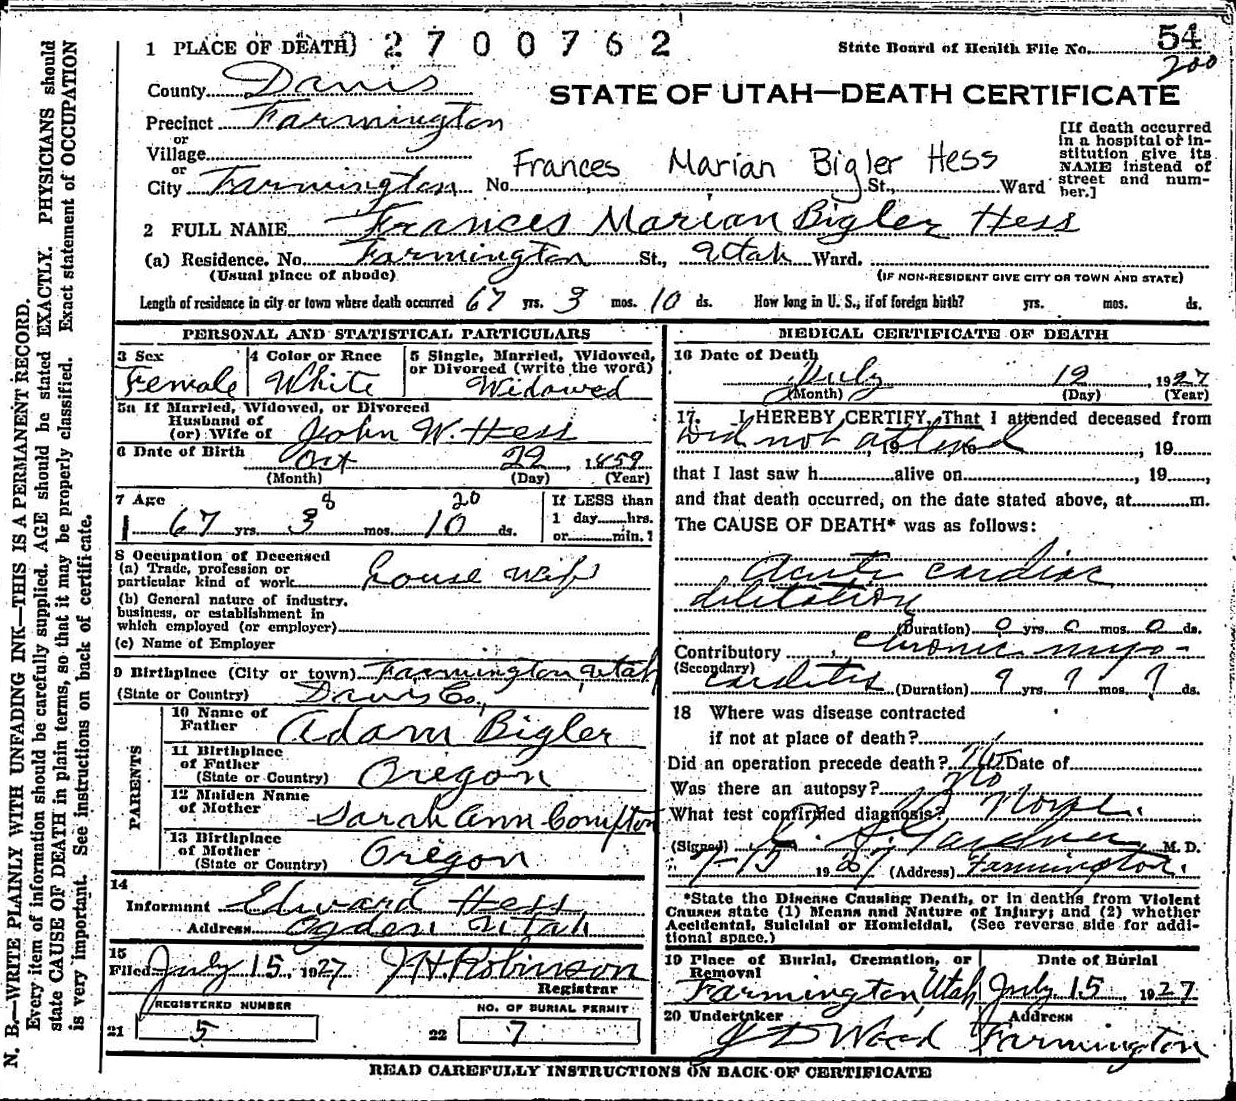 1 PLACE OF DEATH) 2700762 State Board of Health File No. 54
200
County Davis
STATE OF UTAH—DEATH CERTIFICATE
Precinct Farmington
or
Village
or
City Farmington No. St., Ward
Frances Marian Bigler Hess
[If death occurred
in a hospital or in-
stitution give its
NAME instead of
street and num-
ber.]
2 FULL NAME Frances Marian Bigler Hess
(a) Residence. No. Farmington St., Utah Ward.
(Usual place of abode) (IF NON-RESIDENT GIVE CITY OR TOWN AND STATE)
Length of residence in city or town where death occurred 67 yrs. 3 mos. 10 ds. How long in U. S., if of foreign birth? yrs. mos. ds.
PERSONAL AND STATISTICAL PARTICULARS
3 Sex 4 Color or Race 5 Single, Married, Widowed,
or Divorced (write the word)
Female White Widowed
5a If Married, Widowed, or Divorced
Husband of
(or) Wife of John W. Hess
6 Date of Birth
Oct 22, 1859
(Month) (Day) (Year)
7 Age 8 20
67 yrs. 3 mos. 10 ds.
If LESS than
1 day hrs.
or min.?
8 Occupation of Deceased
(a) Trade, profession or
particular kind of work house wife
(b) General nature of industry,
business, or establishment in
which employed (or employer)
(c) Name of Employer
9 Birthplace (City or town) Farmington, Utah
(State or Country) Davis Co.,
PARENTS
10 Name of
Father Adam Bigler
11 Birthplace
of Father
(State or Country) Oregon
12 Maiden Name
of Mother Sarah Ann Compton
13 Birthplace
of Mother
(State or Country) Oregon
14
Informant Edward Hess
Address Ogden Utah
15
Filed July 15, 1927 J H Robinson
Registrar
REGISTERED NUMBER NO. OF BURIAL PERMIT
21 5 22 7
MEDICAL CERTIFICATE OF DEATH
16 Date of Death
July 12, 1927
(Month) (Day) (Year)
17. I HEREBY CERTIFY, That I attended deceased from
Did not attend, 19 to, 19
that I last saw h alive on, 19,
and that death occurred, on the date stated above, at m.
The CAUSE OF DEATH* was as follows:
Acute cardiac
dilitation
(Duration) 0 yrs. 0 mos. 0 ds.
Contributory chronic myo-
(Secondary)
carditis (Duration) ? yrs. ? mos. ? ds.
18 Where was disease contracted
if not at place of death?
Did an operation precede death? No Date of
Was there an autopsy? No
What test confirmed diagnosis? None.
(Signed) Gardner M. D.
7-15 1927 (Address) Farmington.
*State the Disease Causing Death, or in deaths from Violent
Causes state (1) Means and Nature of Injury; and (2) whether
Accidental, Suicidal or Homicidal. (See reverse side for addi-
tional space.)
19 Place of Burial, Cremation, or
Removal
Date of Burial
Farmington, Utah July 15 1927
20 Undertaker Address
J D Wood Farmington
READ CAREFULLY INSTRUCTIONS ON BACK OF CERTIFICATE
N. B.—WRITE PLAINLY WITH UNFADING INK—THIS IS A PERMANENT RECORD.
Every item of information should be carefully supplied. AGE should be stated EXACTLY. PHYSICIANS should
state CAUSE OF DEATH in plain terms, so that it may be properly classified. Exact statement of OCCUPATION
is very important. See instructions on back of certificate.